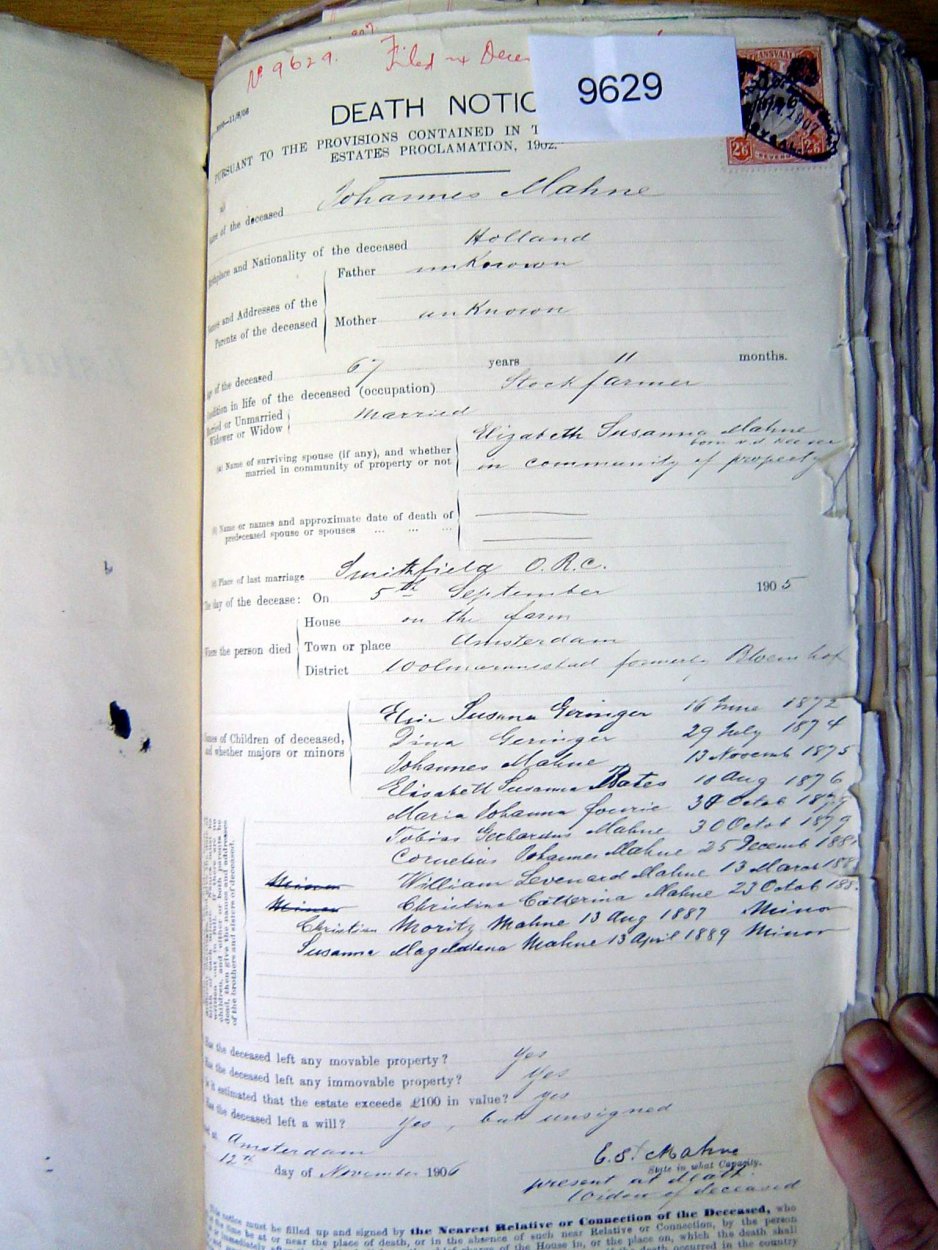 No 9629. Filed
9629
DEATH NOTIC
PURSUANT TO THE PROVISIONS CONTAINED IN T
ESTATES PROCLAMATION, 1902.
ANSVAAL
2/6 2/6
of the deceased Johannes Mahne
and Nationality of the deceased Holland
Father unknown
and Addresses of the
Parents of the deceased
Mother unKnown
of the deceased 67 years 11 months.
in life of the deceased (occupation) Stock farmer
or Unmarried
Widower or Widow Married
(a) Name of surviving spouse (if any), and whether
married in community of property or not
Elizabeth Susanna Mahne
born
in community of property
(b) Name or names and approximate date of death of
predeceased spouse or spouses ... ... ...
(c) Place of last marriage Smithfield O.R.C.
The day of the decease: On 5th September 1905
Where the person died
House on the farm
Town or place Amsterdam
District Wolmaransstad formerly Bloemhof
Names of Children of deceased,
and whether majors or minors
Elsie Susana Geringer 16 June 1872
Dina Geringer 29 July 1874
Johannes Mahne 13 Novemb 1875
Elisabeth Susanna Bates 10 Aug 1876
Maria Johanna Fourie Octob
Tobias Gerhardus Mahne 30 Octob 1879
Cornelius Johannes Mahne 25 Decemb 188
Minor William Levenard Mahne 13 March 188
Minor Christina Catterina Mahne 23 Octob 188
Christian Moritz Mahne 13 Aug 1887 Minor
Susanna Magdalena Mahne 13 April 1889 Minor
children, and either or both parents be
dead, then give the names and addresses
of the brothers and sisters of deceased.
the deceased left any movable property? yes
the deceased left any immovable property? yes
estimated that the estate exceeds £100 in value? yes
the deceased left a will? yes, but unsigned
at Amsterdam
12th day of November 1906
E. S. Mahne
State in what Capacity.
present at death.
Widow of deceased
notice must be filled up and signed by the Nearest Relative or Connection of the Deceased, who
time be at or near the place of death, or in the absence of such near Relative or Connection, by the person
of the House in, or the place on, which the death shall